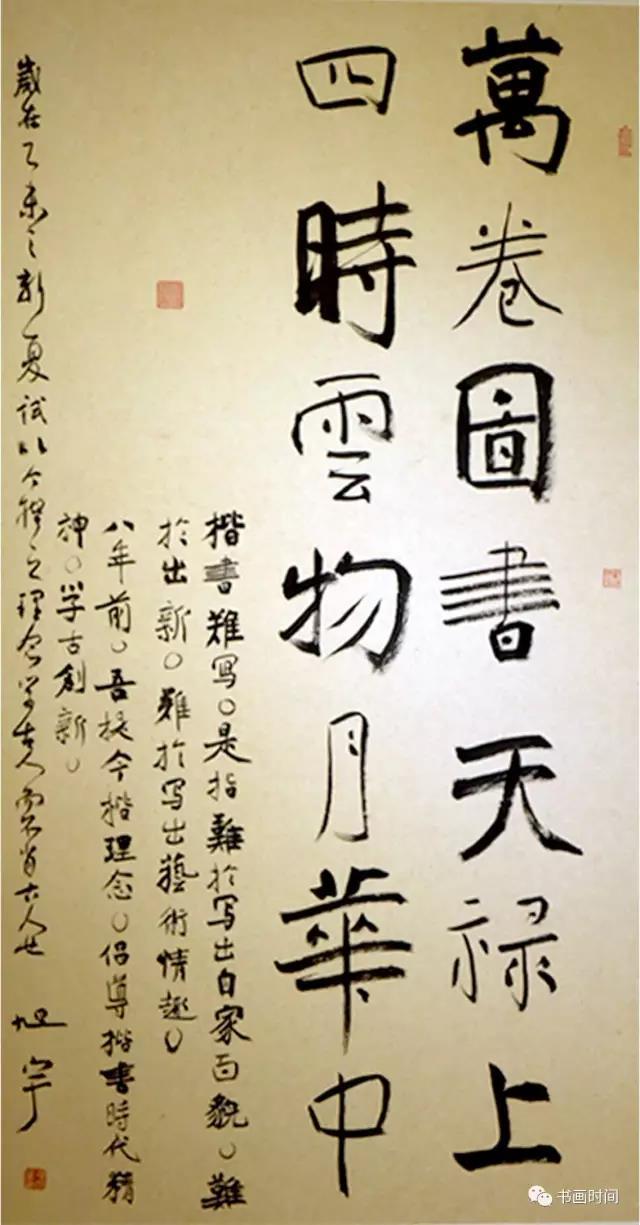 萬卷圖書天禄上
四時雲物月華中
楷書難写。是指難於写出自家面貌。難
於出新。難於写出藝術情趣。
八年前。吾提今楷理念。倡導楷書時代精
神。学古創新。
歲在乙未之新夏試以今楷之理念学古人而不肖古人也 旭宇
书画时间